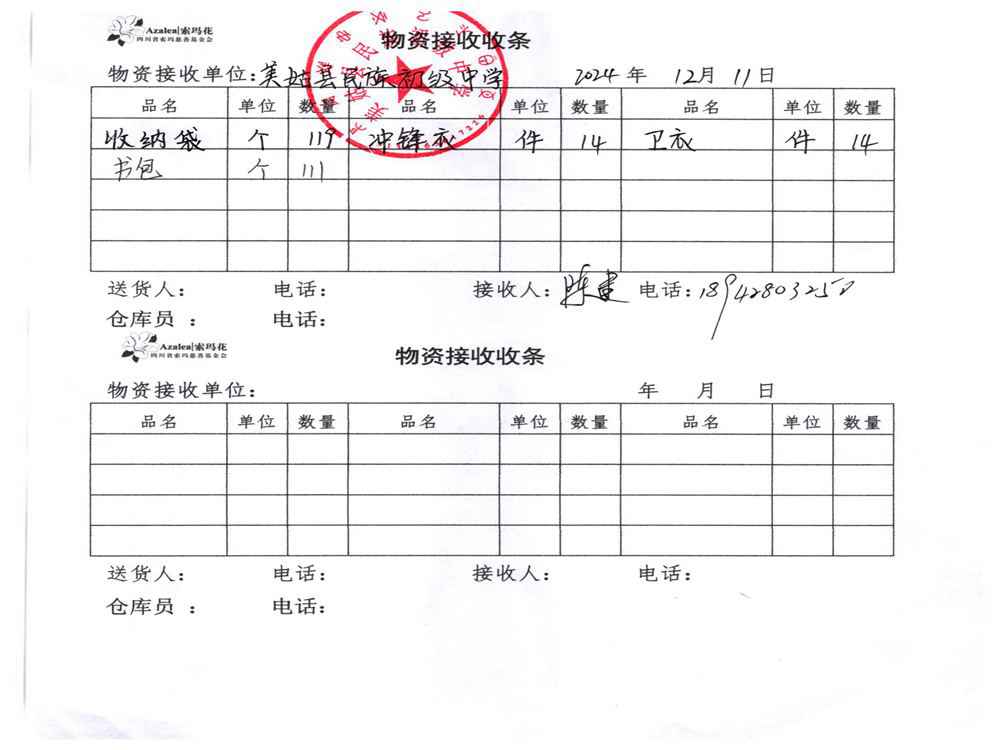 Azalea|索玛花
四川省索玛慈善基金会
物资接收收条
物资接收单位:美姑县民族初级中学 2024 年 12月 11日
品名 单位 数量 品名 单位 数量 品名 单位 数量
收纳袋 个 119 冲锋衣 件 14 卫衣 件 14
书包 个 111
送货人: 电话: 接收人: 陈建 电话:18942803250
仓库员 : 电话:
Azalea|索玛花
四川省索玛慈善基金会
物资接收收条
物资接收单位: 年 月 日
品名 单位 数量 品名 单位 数量 品名 单位 数量
送货人: 电话: 接收人: 电话:
仓库员 : 电话: